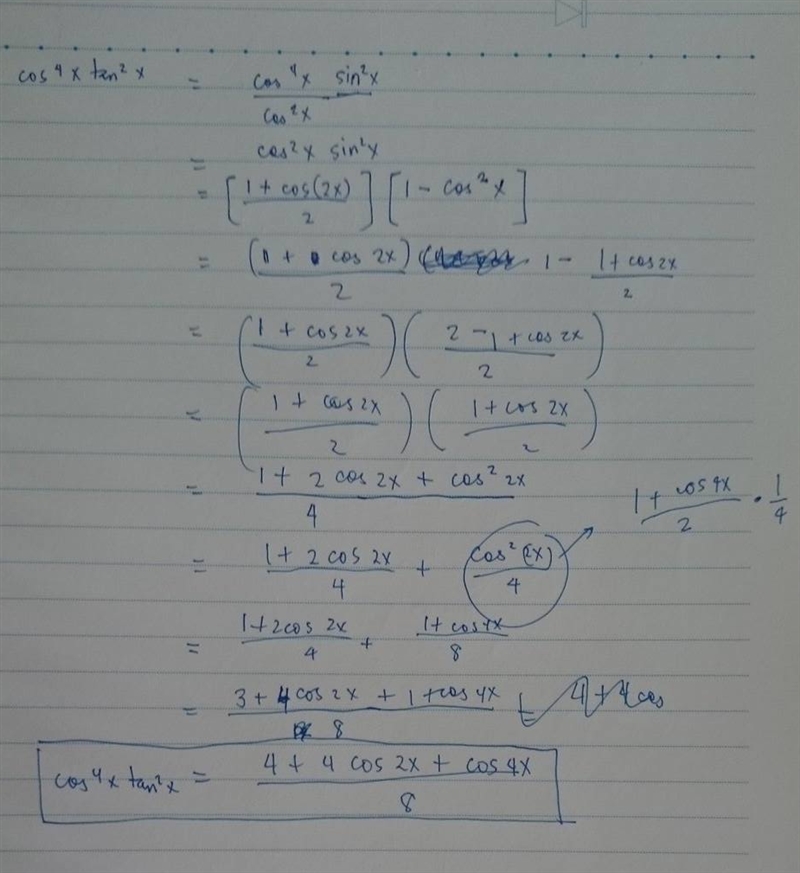 cos⁴x tan²x = cos⁴x sin²x / cos²x
= cos²x sin²x
= [1 + cos(2x) / 2] [1 - cos²x]
= (1 + cos 2x) / 2 1 - 1 + cos2x / 2
= (1 + cos2x / 2) (2 - 1 + cos 2x / 2)
= (1 + cos2x / 2) (1 + cos 2x / 2)
= 1 + 2 cos 2x + cos² 2x / 4
1 + cos 4x / 2 · 1/4
= 1 + 2 cos 2x / 4 + cos² (2x) / 4
= 1 + 2cos 2x / 4 + 1 + cos4x / 8
= 3 + 4 cos 2x + 1 + cos 4x / 8 = 4 + 4 cos
cos⁴x tan²x = 4 + 4 cos 2x + cos 4x / 8